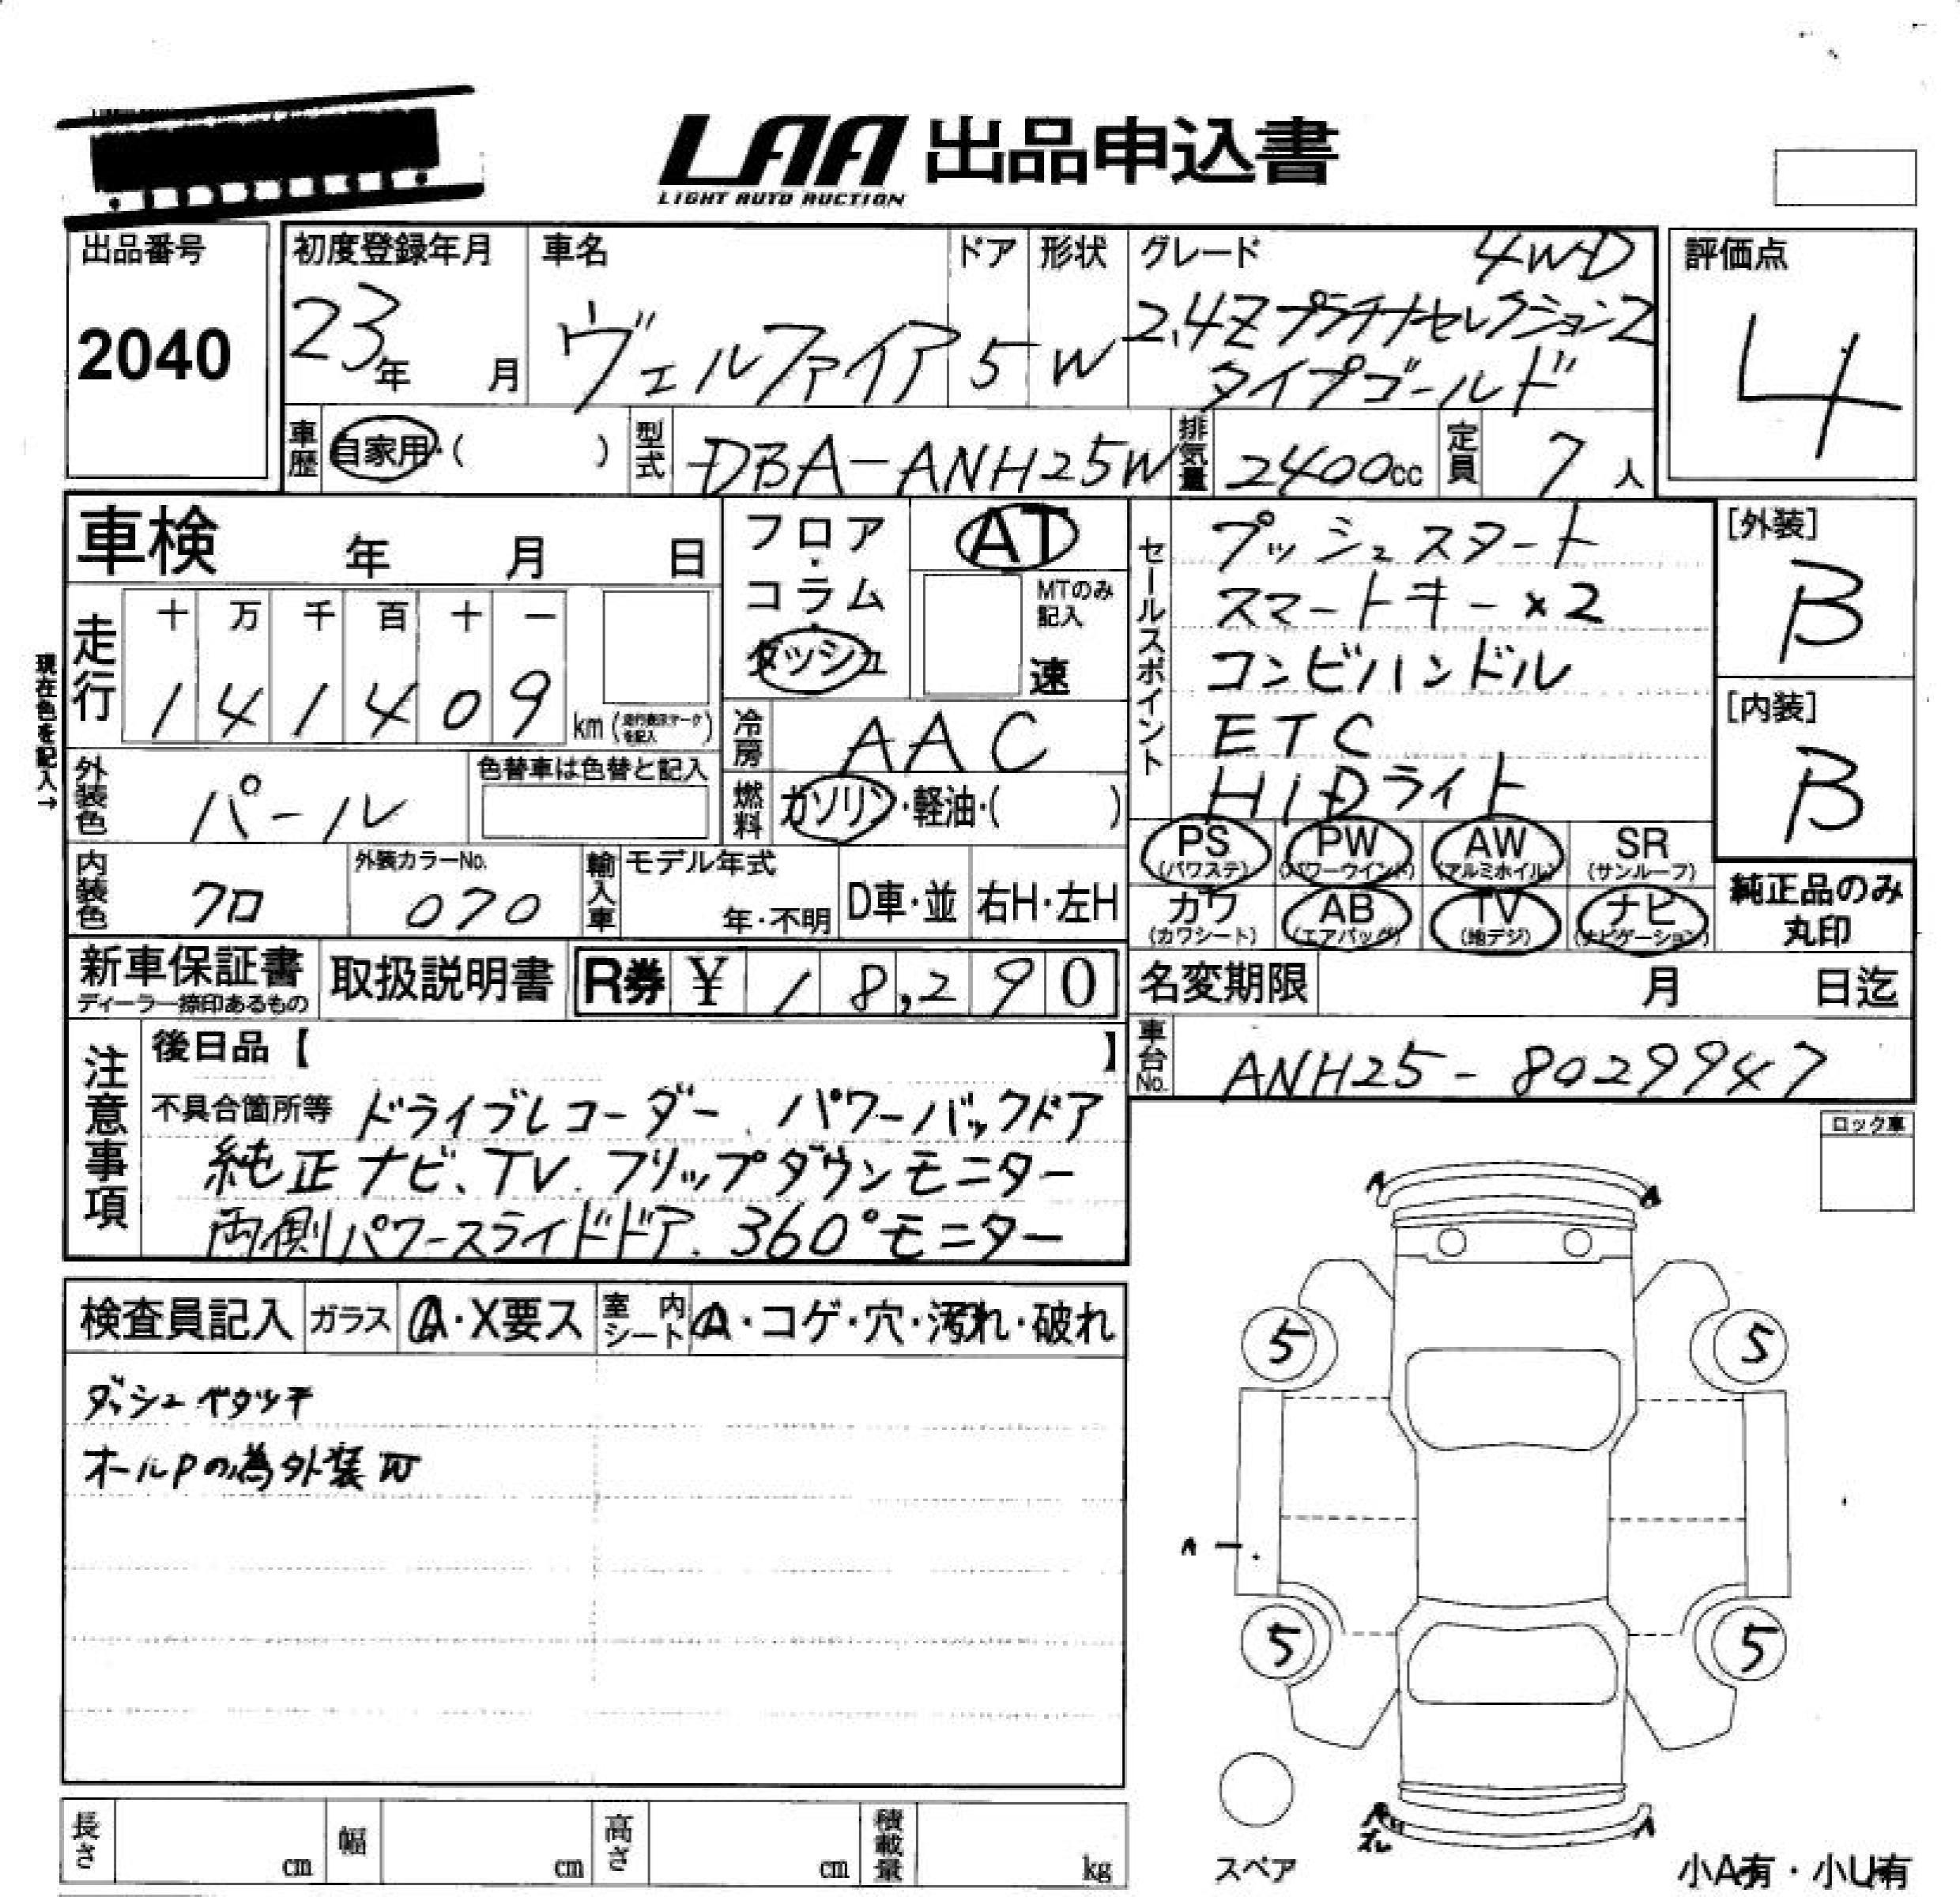 LAA 出品申込書
LIGHT AUTO AUCTION
出品番号
2040
初度登録年月
23年 月
車名
ヴェルファイア
ドア
5
形状
W
グレード
4WD
2.4Z プラチナセレクション2
タイプゴールド
評価点
4
車歴 自家用・( )
型式 DBA-ANH25W
排気量 2400cc
定員 7人
車検 年 月 日
現在色を記入→
走行
十 万 千 百 十 一
1 4 1 4 0 9 km (走行表示マークを記入)
フロア・コラム・ダッシュ
AT
MTのみ記入
速
冷房 AAC
燃料 ガソリン・軽油・( )
外装色 パール
色替車は色替と記入
内装色 クロ
外装カラーNo.
070
輸入車
モデル年式
年・不明
D車・並
右H・左H
セールスポイント
プッシュスタート
スマートキー×2
コンビハンドル
ETC
HiDライト
[外装]
B
[内装]
B
PS (パワステ)
PW (パワーウインド)
AW (アルミホイル)
SR (サンルーフ)
カワ (カワシート)
AB (エアバッグ)
TV (地デジ)
ナビ (ナビゲーション)
純正品のみ
丸印
新車保証書
ディーラー捺印あるもの
取扱説明書
R券 ¥ 18,290
名変期限 月 日迄
車台No. ANH25-8029947
注意事項
後日品【 】
不具合箇所等 ドライブレコーダー、パワーバックドア
純正ナビ、TV、フリップダウンモニター
両側パワースライドドア、360°モニター
ロック車
検査員記入
ガラス A・X要ス
室内シート A・コゲ・穴・汚れ・破れ
ダッシュベタツキ
オールPの為外装W
A A
5 5
A
5 5
A
スペア
小A有・小U有
長さ cm
幅 cm
高さ cm
積載量 kg